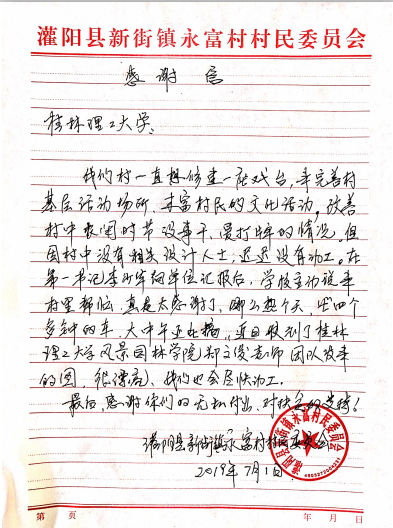 灌阳县新街镇永富村村民委员会
感谢信
桂林理工大学:
我们村一直想修建一座戏台,来完善村
基层活动场所,丰富村民的文化活动。改善
村中农闲时节没事干、爱打牌的情况。但
因村中没有相关设计人士,迟迟没有动工。在
第一书记李 军向单位汇报后,学校主动说来
村里帮忙,真是太感谢了,那么热个天,坐四个
多钟的车,大中午还在搞。近日收到了桂林
理工大学风景园林学院郑文俊老师团队发来
的图,很漂亮,我们也会尽快动工。
最后,感谢你们的无私付出、对扶贫的支持!
灌阳县新街镇永富村村民委员会
2019年7月1日
灌阳县新街镇永富村村民委员会
第 页 年 月 日